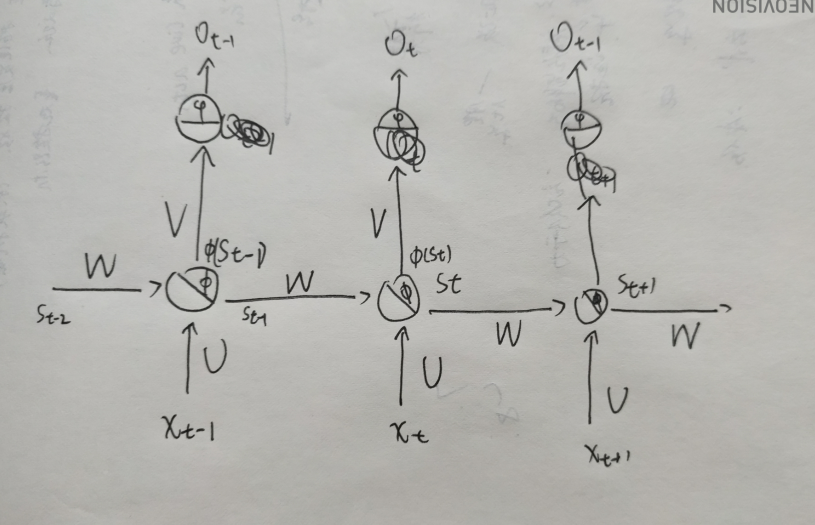 NEOVISION
O_{t-1} O_t O_{t-1}
φ φ φ
V V
ϕ(S_{t-1}) ϕ(S_t)
W ϕ W ϕ S_t ϕ S_{t+1}
S_{t-2} S_{t-1} W W
U U U
X_{t-1} X_t X_{t+1}